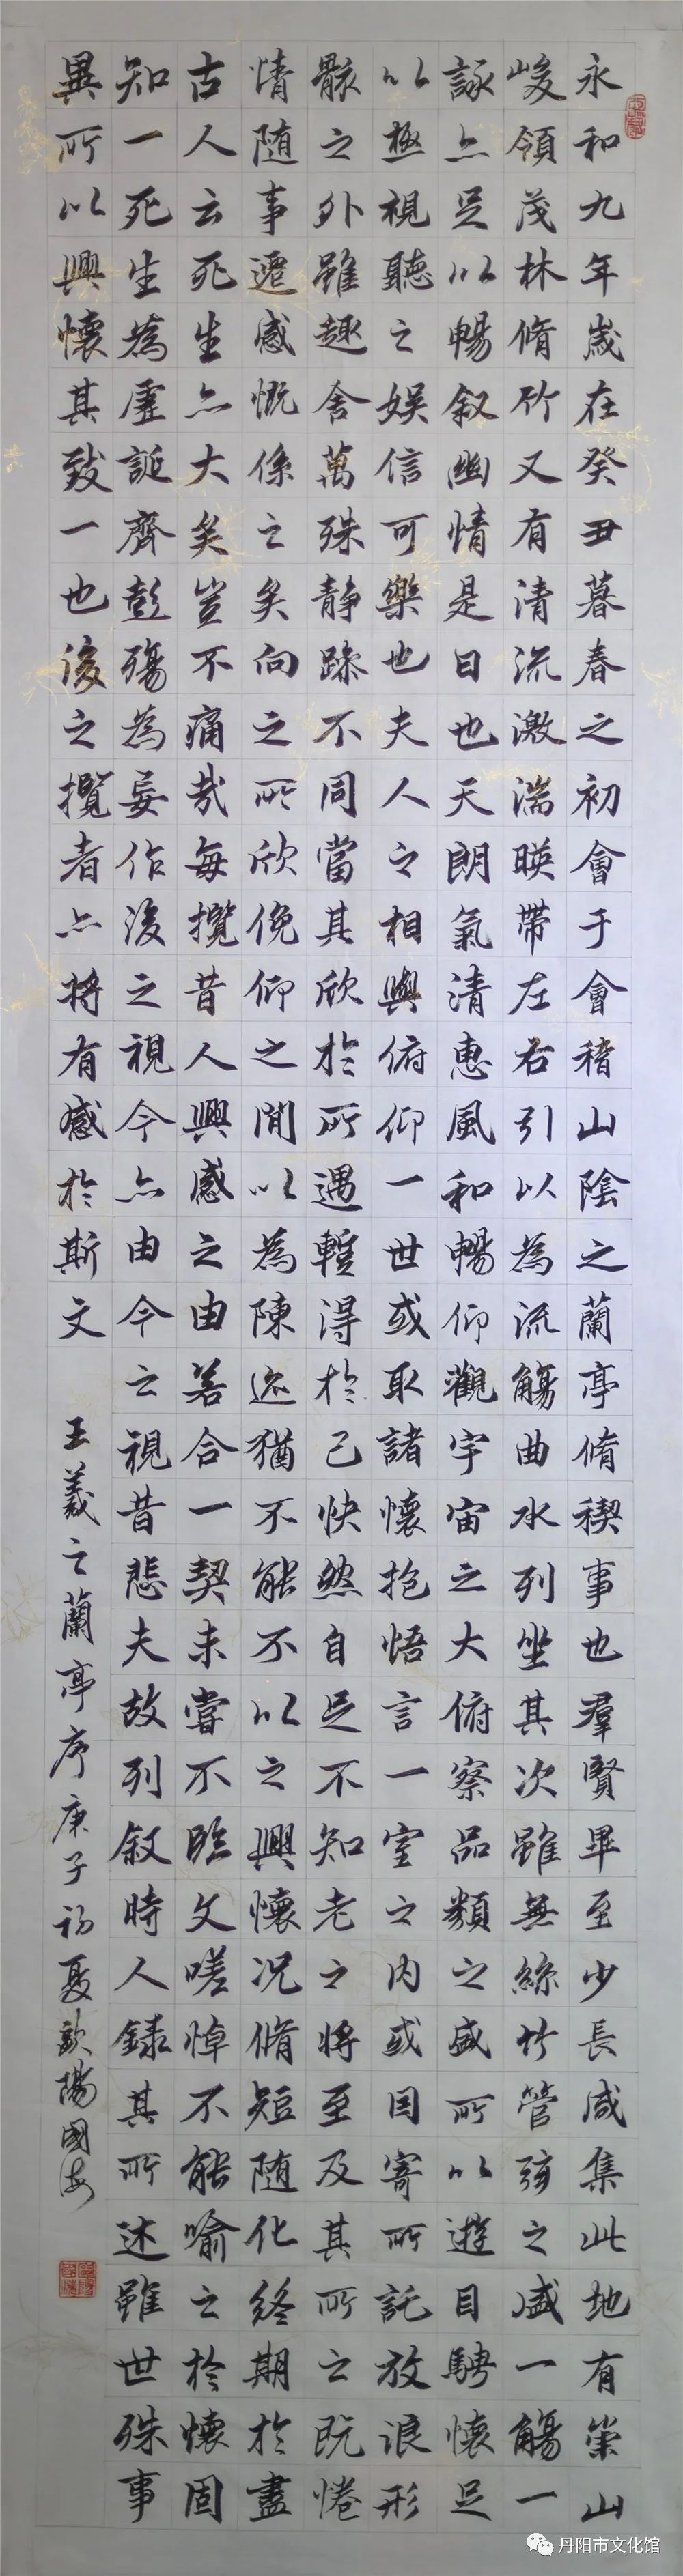 永和九年歲在癸丑暮春之初會于會稽山陰之蘭亭脩稧事也羣賢畢至少長咸集此地有崇山
峻領茂林脩竹又有清流激湍暎帶左右引以為流觴曲水列坐其次雖無絲竹管弦之盛一觴一
詠亦足以暢叙幽情是日也天朗氣清惠風和暢仰觀宇宙之大俯察品類之盛所以遊目騁懷足
以極視聽之娛信可樂也夫人之相與俯仰一世或取諸懷抱悟言一室之内或因寄所託放浪形
骸之外雖趣舍萬殊静躁不同當其欣於所遇暫得於己快然自足不知老之將至及其所之既惓
情随事遷感慨係之矣向之所欣俛仰之閒以為陳迹猶不能不以之興懷況脩短随化終期於盡
古人云死生亦大矣豈不痛哉每攬昔人興感之由若合一契未嘗不臨文嗟悼不能喻之於懷固
知一死生為虛誕齊彭殤為妄作後之視今亦由今之視昔悲夫故列叙時人錄其所述雖世殊事
異所以興懷其致一也後之攬者亦將有感於斯文 王羲之蘭亭序庚子初夏歐陽國海
丹阳市文化馆